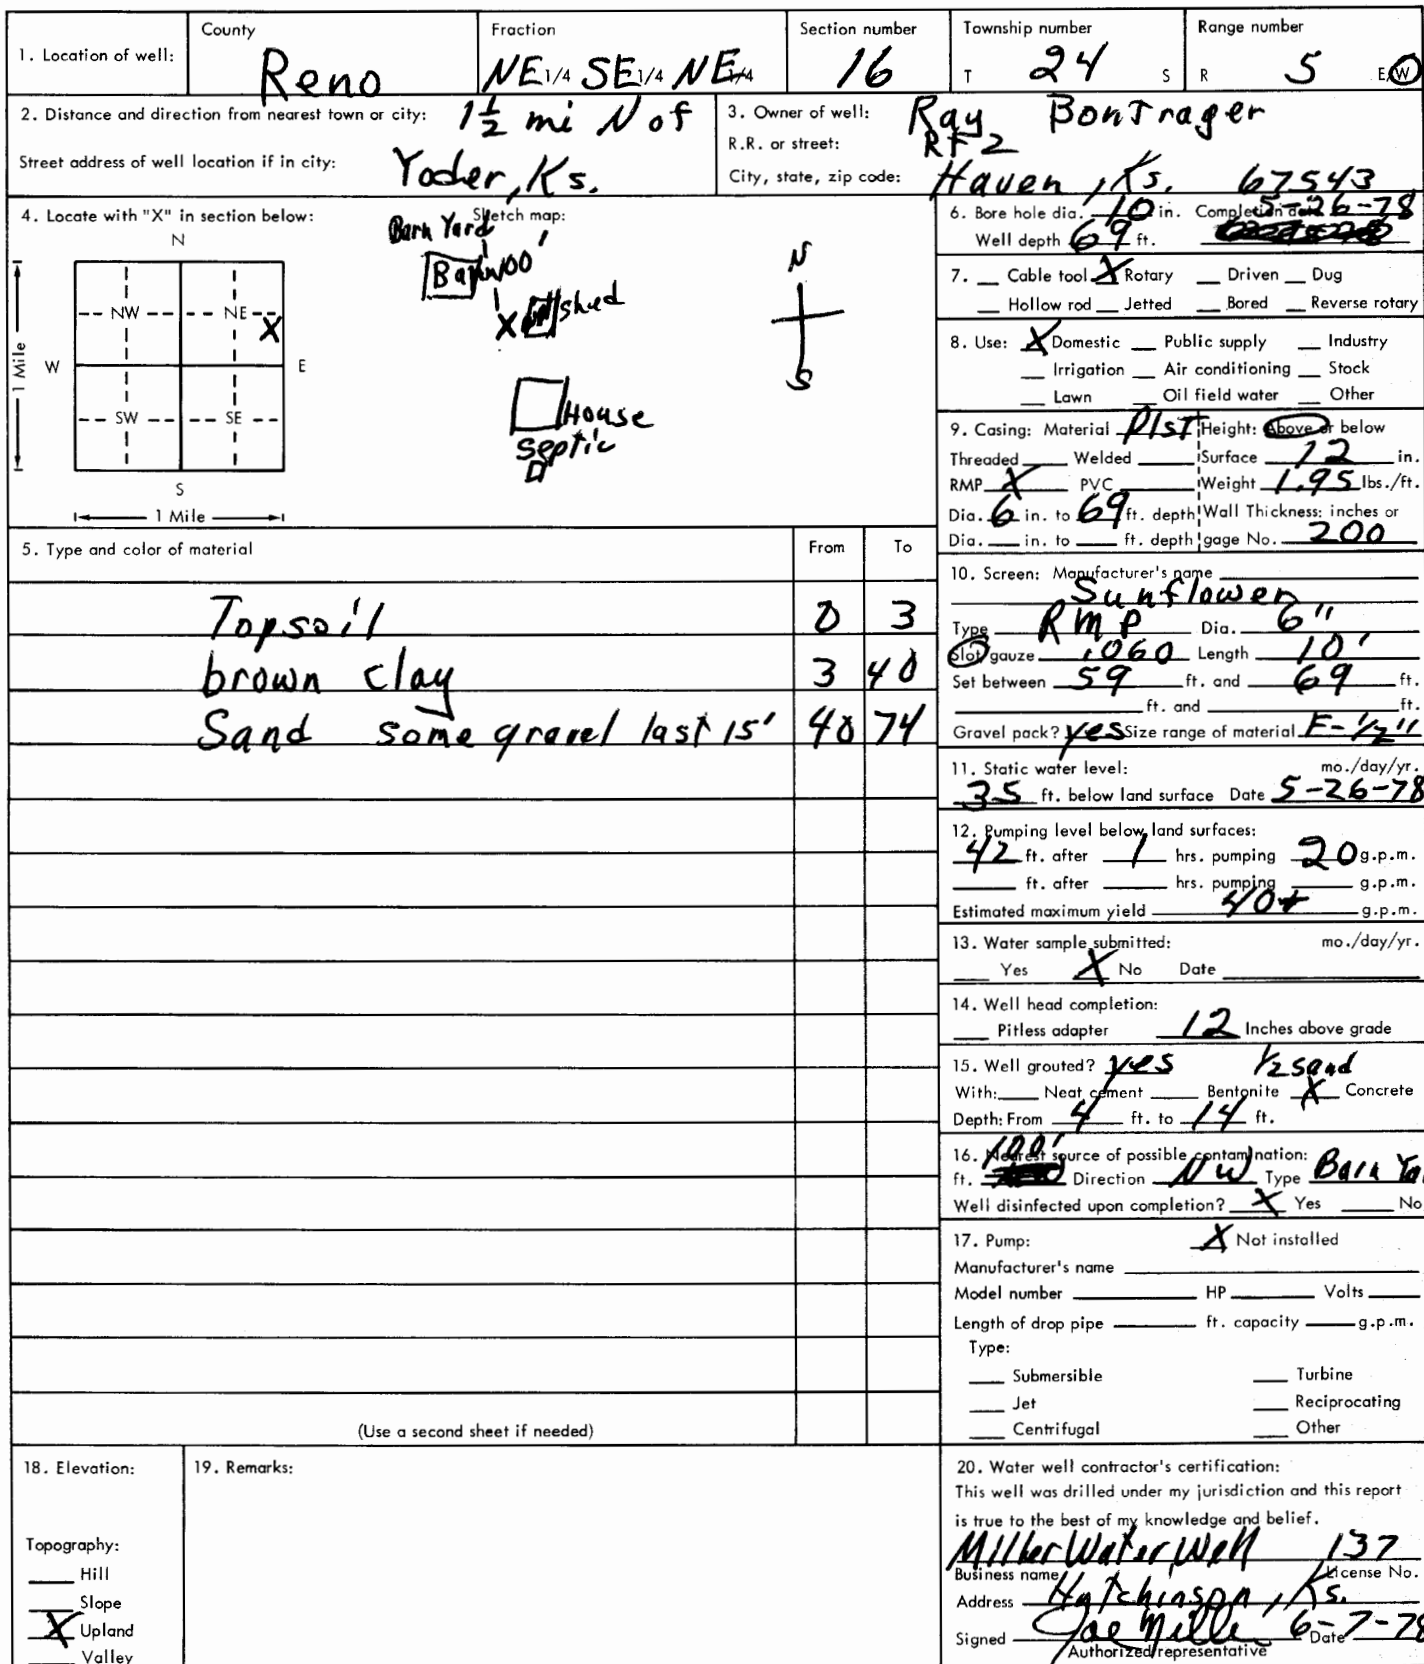 County Fraction Section number Township number Range number
1. Location of well: Reno NE 1/4 SE 1/4 NE 1/4 16 T 24 S R 5 E/W
2. Distance and direction from nearest town or city: 1½ mi N of
Street address of well location if in city: Yoder, Ks.
3. Owner of well: Ray Bontrager
R.R. or street: Rt 2
City, state, zip code: Haven, Ks. 67543
4. Locate with "X" in section below:
N
NW NE X
W E
SW SE
S
1 Mile
1 Mile
Sketch map:
Barn Yard
Barn 100'
X shed
House
septic
N
S
6. Bore hole dia. 10 in. Completion date 5-26-78
Well depth 69 ft.
7. Cable tool X Rotary Driven Dug
Hollow rod Jetted Bored Reverse rotary
8. Use: X Domestic Public supply Industry
Irrigation Air conditioning Stock
Lawn Oil field water Other
9. Casing: Material Plst Height: Above or below
Threaded Welded Surface 12 in.
RMP X PVC Weight 1.95 lbs./ft.
Dia. 6 in. to 69 ft. depth Wall Thickness: inches or
Dia. in. to ft. depth gage No. 200
5. Type and color of material From To
Topsoil 0 3
brown clay 3 40
Sand some gravel last 15' 40 74
(Use a second sheet if needed)
10. Screen: Manufacturer's name
Sunflower
Type RMP Dia. 6"
Slot gauze .060 Length 10'
Set between 59 ft. and 69 ft.
ft. and ft.
Gravel pack? yes Size range of material F-1/2"
11. Static water level: mo./day/yr.
35 ft. below land surface Date 5-26-78
12. Pumping level below land surfaces:
42 ft. after 1 hrs. pumping 20 g.p.m.
ft. after hrs. pumping g.p.m.
Estimated maximum yield 40+ g.p.m.
13. Water sample submitted: mo./day/yr.
Yes X No Date
14. Well head completion:
Pitless adapter 12 Inches above grade
15. Well grouted? yes 1/2 sand
With: Neat cement Bentonite X Concrete
Depth: From 4 ft. to 14 ft.
16. Nearest source of possible contamination:
ft. 100' Direction NW Type Barn Ya
Well disinfected upon completion? X Yes No
17. Pump: X Not installed
Manufacturer's name
Model number HP Volts
Length of drop pipe ft. capacity g.p.m.
Type:
Submersible Turbine
Jet Reciprocating
Centrifugal Other
18. Elevation:
Topography:
Hill
Slope
X Upland
Valley
19. Remarks:
20. Water well contractor's certification:
This well was drilled under my jurisdiction and this report
is true to the best of my knowledge and belief.
Miller Water Well 137
Business name License No.
Address Hutchinson, Ks.
Signed Joe Miller Date 6-7-78
Authorized representative